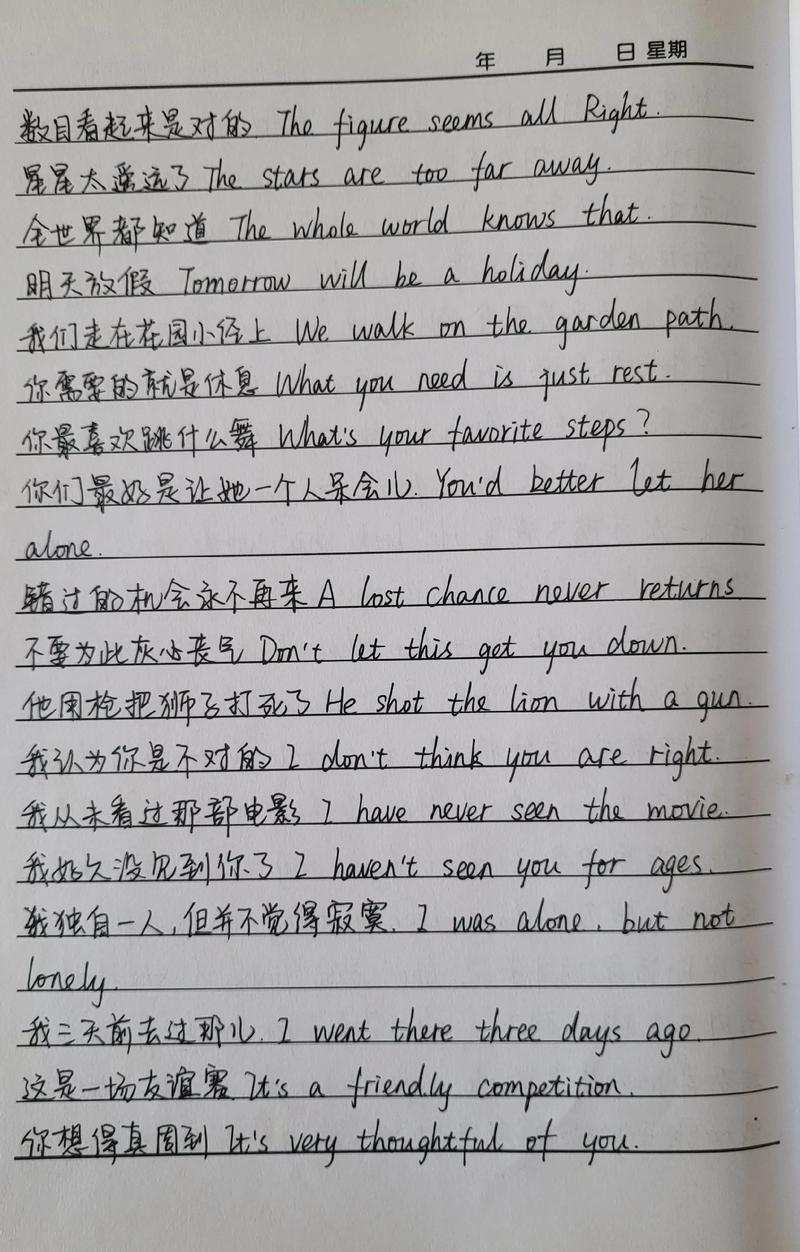 年 月 日 星期
数目看起来是对的 The figure seems all Right.
星星太遥远了 The stars are too far away.
全世界都知道 The whole world knows that.
明天放假 Tomorrow will be a holiday.
我们走在花园小径上 We walk on the garden path.
你需要的就是休息 What you need is just rest.
你最喜欢跳什么舞 What's your favorite steps?
你们最好是让她一个人呆会儿. You'd better let her
alone.
错过的机会永不再来 A lost chance never returns
不要为此灰心丧气 Don't let this get you down.
他用枪把狮子打死了 He shot the lion with a gun.
我认为你是不对的 I don't think you are right.
我从未看过那部电影 I have never seen the movie.
我好久没见到你了 I haven't seen you for ages.
我独自一人,但并不觉得寂寞. I was alone, but not
lonely.
我三天前去过那儿. I went there three days ago.
这是一场友谊赛 It's a friendly competition.
你想得真周到 It's very thoughtful of you.